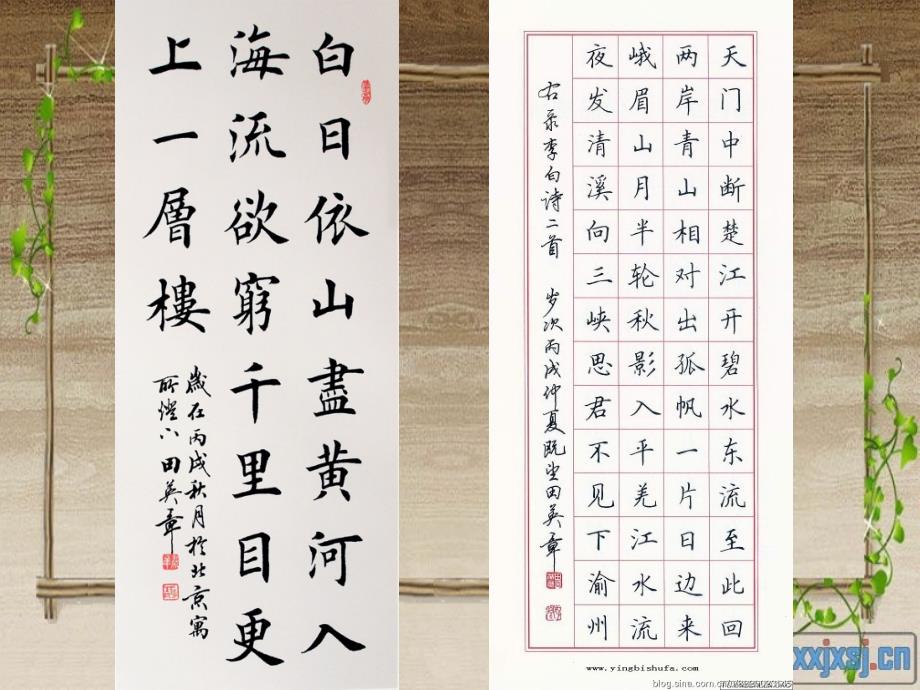 白日依山盡黄河入
海流欲窮千里目更
上一層樓
歲在丙戌秋月於北京寓
所燈下田英章
天门中断楚江开碧水东流至此回
两岸青山相对出孤帆一片日边来
峨眉山月半轮秋影入平羌江水流
夜发清溪向三峡思君不见下渝州
右录李白诗二首 岁次丙戌仲夏既望田英章
www.yingbishufa.com
blog.sina.com.cn
xxjxsj.cn